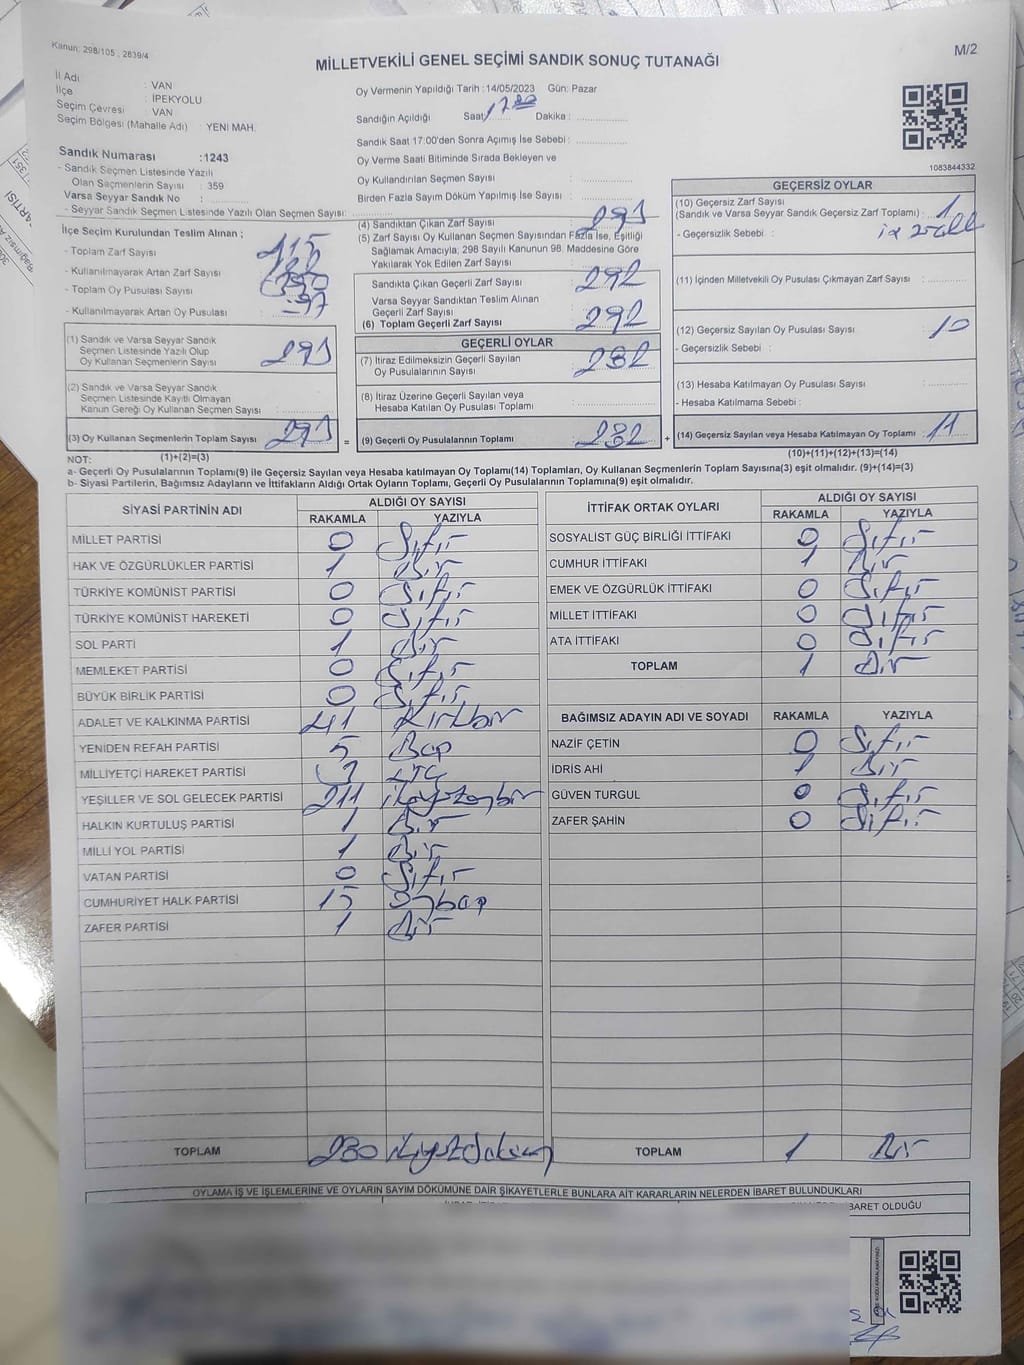 Kanun: 298/105 , 2839/4
MİLLETVEKİLİ GENEL SEÇİMİ SANDIK SONUÇ TUTANAĞI
M/2
İl Adı : VAN
İlçe : İPEKYOLU
Seçim Çevresi : VAN
Seçim Bölgesi (Mahalle Adı) : YENİ MAH.
Sandık Numarası :1243
- Sandık Seçmen Listesinde Yazılı
Olan Seçmenlerin Sayısı : 359
Varsa Seyyar Sandık No :
- Seyyar Sandık Seçmen Listesinde Yazılı Olan Seçmen Sayısı:
Oy Vermenin Yapıldığı Tarih :14/05/2023 Gün: Pazar
Sandığın Açıldığı Saat: 17 00 Dakika :
Sandık Saat 17:00'den Sonra Açımış İse Sebebi :
Oy Verme Saati Bitiminde Sırada Bekleyen ve
Oy Kullandırılan Seçmen Sayısı :
Birden Fazla Sayım Döküm Yapılmış İse Sayısı :
1083844332
İlçe Seçim Kurulundan Teslim Alınan ;
- Toplam Zarf Sayısı :
- Kullanılmayarak Artan Zarf Sayısı :
- Toplam Oy Pusulası Sayısı :
- Kullanılmayarak Artan Oy Pusulası :
(1) Sandık ve Varsa Seyyar Sandık
Seçmen Listesinde Yazılı Olup
Oy Kullanan Seçmenlerin Sayısı : 293
(2) Sandık ve Varsa Seyyar Sandık
Seçmen Listesinde Kayıtlı Olmayan
Kanun Gereği Oy Kullanan Seçmen Sayısı :
(3) Oy Kullanan Seçmenlerin Toplam Sayısı : 293
(1)+(2)=(3)
(4) Sandıktan Çıkan Zarf Sayısı : 293
(5) Zarf Sayısı Oy Kullanan Seçmen Sayısından Fazla İse, Eşitliği
Sağlamak Amacıyla; 298 Sayılı Kanunun 98. Maddesine Göre
Yakılarak Yok Edilen Zarf Sayısı :
Sandıkta Çıkan Geçerli Zarf Sayısı : 292
Varsa Seyyar Sandıktan Teslim Alınan
Geçerli Zarf Sayısı :
(6) Toplam Geçerli Zarf Sayısı : 292
GEÇERLİ OYLAR
(7) İtiraz Edilmeksizin Geçerli Sayılan
Oy Pusulalarının Sayısı : 282
(8) İtiraz Üzerine Geçerli Sayılan veya
Hesaba Katılan Oy Pusulası Toplamı :
= (9) Geçerli Oy Pusulalarının Toplamı : 282
GEÇERSİZ OYLAR
(10) Geçersiz Zarf Sayısı
(Sandık ve Varsa Seyyar Sandık Geçersiz Zarf Toplamı) : 1
- Geçersizlik Sebebi :
(11) İçinden Milletvekili Oy Pusulası Çıkmayan Zarf Sayısı :
(12) Geçersiz Sayılan Oy Pusulası Sayısı : 10
- Geçersizlik Sebebi :
(13) Hesaba Katılmayan Oy Pusulası Sayısı :
- Hesaba Katılmama Sebebi :
+ (14) Geçersiz Sayılan veya Hesaba Katılmayan Oy Toplamı : 11
(10)+(11)+(12)+(13)=(14)
NOT:
a- Geçerli Oy Pusulalarının Toplamı(9) ile Geçersiz Sayılan veya Hesaba katılmayan Oy Toplamı(14) Toplamları, Oy Kullanan Seçmenlerin Toplam Sayısına(3) eşit olmalıdır. (9)+(14)=(3)
b- Siyasi Partilerin, Bağımsız Adayların ve İttifakların Aldığı Ortak Oyların Toplamı, Geçerli Oy Pusulalarının Toplamına(9) eşit olmalıdır.
SİYASİ PARTİNİN ADI ALDIĞI OY SAYISI
RAKAMLA YAZIYLA
MİLLET PARTİSİ 0 Sıfır
HAK VE ÖZGÜRLÜKLER PARTİSİ 1 Bir
TÜRKİYE KOMÜNİST PARTİSİ 0 Sıfır
TÜRKİYE KOMÜNİST HAREKETİ 0 Sıfır
SOL PARTİ 1 Bir
MEMLEKET PARTİSİ 0 Sıfır
BÜYÜK BİRLİK PARTİSİ 0 Sıfır
ADALET VE KALKINMA PARTİSİ 41 Kırkbir
YENİDEN REFAH PARTİSİ 5 Beş
MİLLİYETÇİ HAREKET PARTİSİ 3 üç
YEŞİLLER VE SOL GELECEK PARTİSİ 211 ikiyüzonbir
HALKIN KURTULUŞ PARTİSİ 1 Bir
MİLLİ YOL PARTİSİ 1 Bir
VATAN PARTİSİ 0 Sıfır
CUMHURİYET HALK PARTİSİ 15 Onbeş
ZAFER PARTİSİ 1 Bir
TOPLAM 280 ikiyüzseksen
İTTİFAK ORTAK OYLARI ALDIĞI OY SAYISI
RAKAMLA YAZIYLA
SOSYALİST GÜÇ BİRLİĞİ İTTİFAKI 0 Sıfır
CUMHUR İTTİFAKI 1 Bir
EMEK VE ÖZGÜRLÜK İTTİFAKI 0 Sıfır
MİLLET İTTİFAKI 0 Sıfır
ATA İTTİFAKI 0 Sıfır
TOPLAM 1 Bir
BAĞIMSIZ ADAYIN ADI VE SOYADI RAKAMLA YAZIYLA
NAZİF ÇETİN 0 Sıfır
İDRİS AHİ 1 Bir
GÜVEN TURGUL 0 Sıfır
ZAFER ŞAHİN 0 Sıfır
TOPLAM 1 Bir
OYLAMA İŞ VE İŞLEMLERİNE VE OYLARIN SAYIM DÖKÜMÜNE DAİR ŞİKAYETLERLE BUNLARA AİT KARARLARIN NELERDEN İBARET BULUNDUKLARI
İBARET OLDUĞU